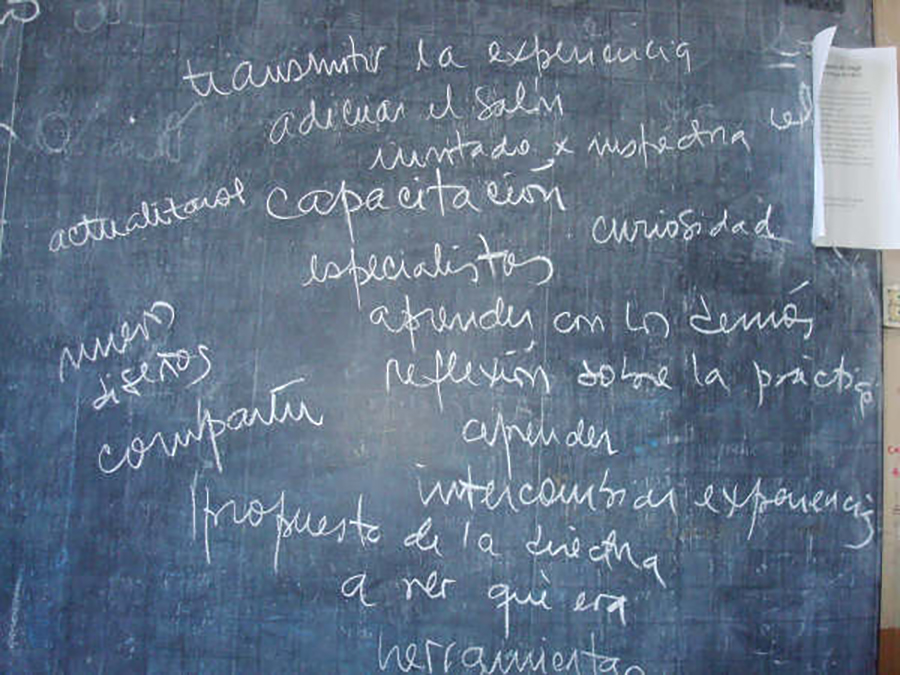 transmitir la experiencia
adecuar el salón
invitado x inspectora
actualizarse capacitación
curiosidad
especialistas
aprender con los demás
nuevos
diseños
reflexión sobre la práctica
compartir
aprender
intercambiar experiencias
propuesta de la directora
a ver qué era
herramientas